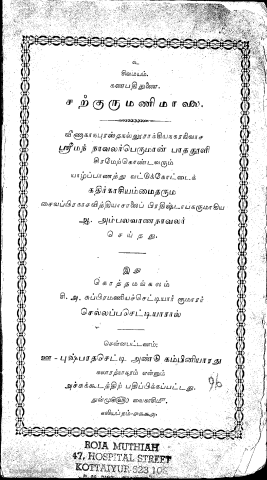 உ
சிவமயம்.
கணபதி துணை.
சற்குருமணிமாலை.
ஸ்ரீமந் நாவலர்பெருமான் பாததூளி
சிரமேற்கொண்டவரும்
யாழ்ப்பாணத்து வட்டுக்கோட்டைக்
சைவப்பிரகாசவித்தியாசாலைப்
ஆ. அம்பலவாணநாவலர்
செய்தது.
இது
கொத்தமங்கலம்
சி. அ. சுப்பிரமணியச்செட்டியார் குமாரர்
செல்லப்பசெட்டியாரால்
சென்னபட்டணம்:
ஊ - புஷ்பரதசெட்டி அண்டு கம்பினியாரது
கலாரத்நாகரம் என்னும்
அச்சுக்கூடத்திற் பதிப்பிக்கப்பட்டது.
96
ROJA MUTHIAH
47, HOSPITAL STREET
KOTTAIYUR 623 106